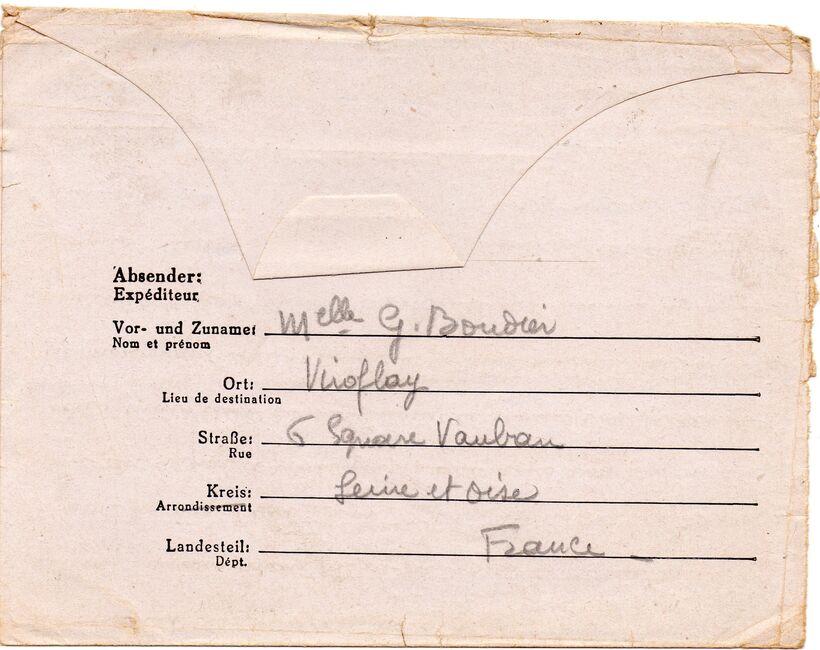 Absender:
Expéditeur
Vor- und Zuname: Melle G. Boudier
Nom et prénom
Ort: Viroflay
Lieu de destination
Straße: 5 Square Vauban
Rue
Kreis: Seine et Oise
Arrondissement
Landesteil: France
Dépt.